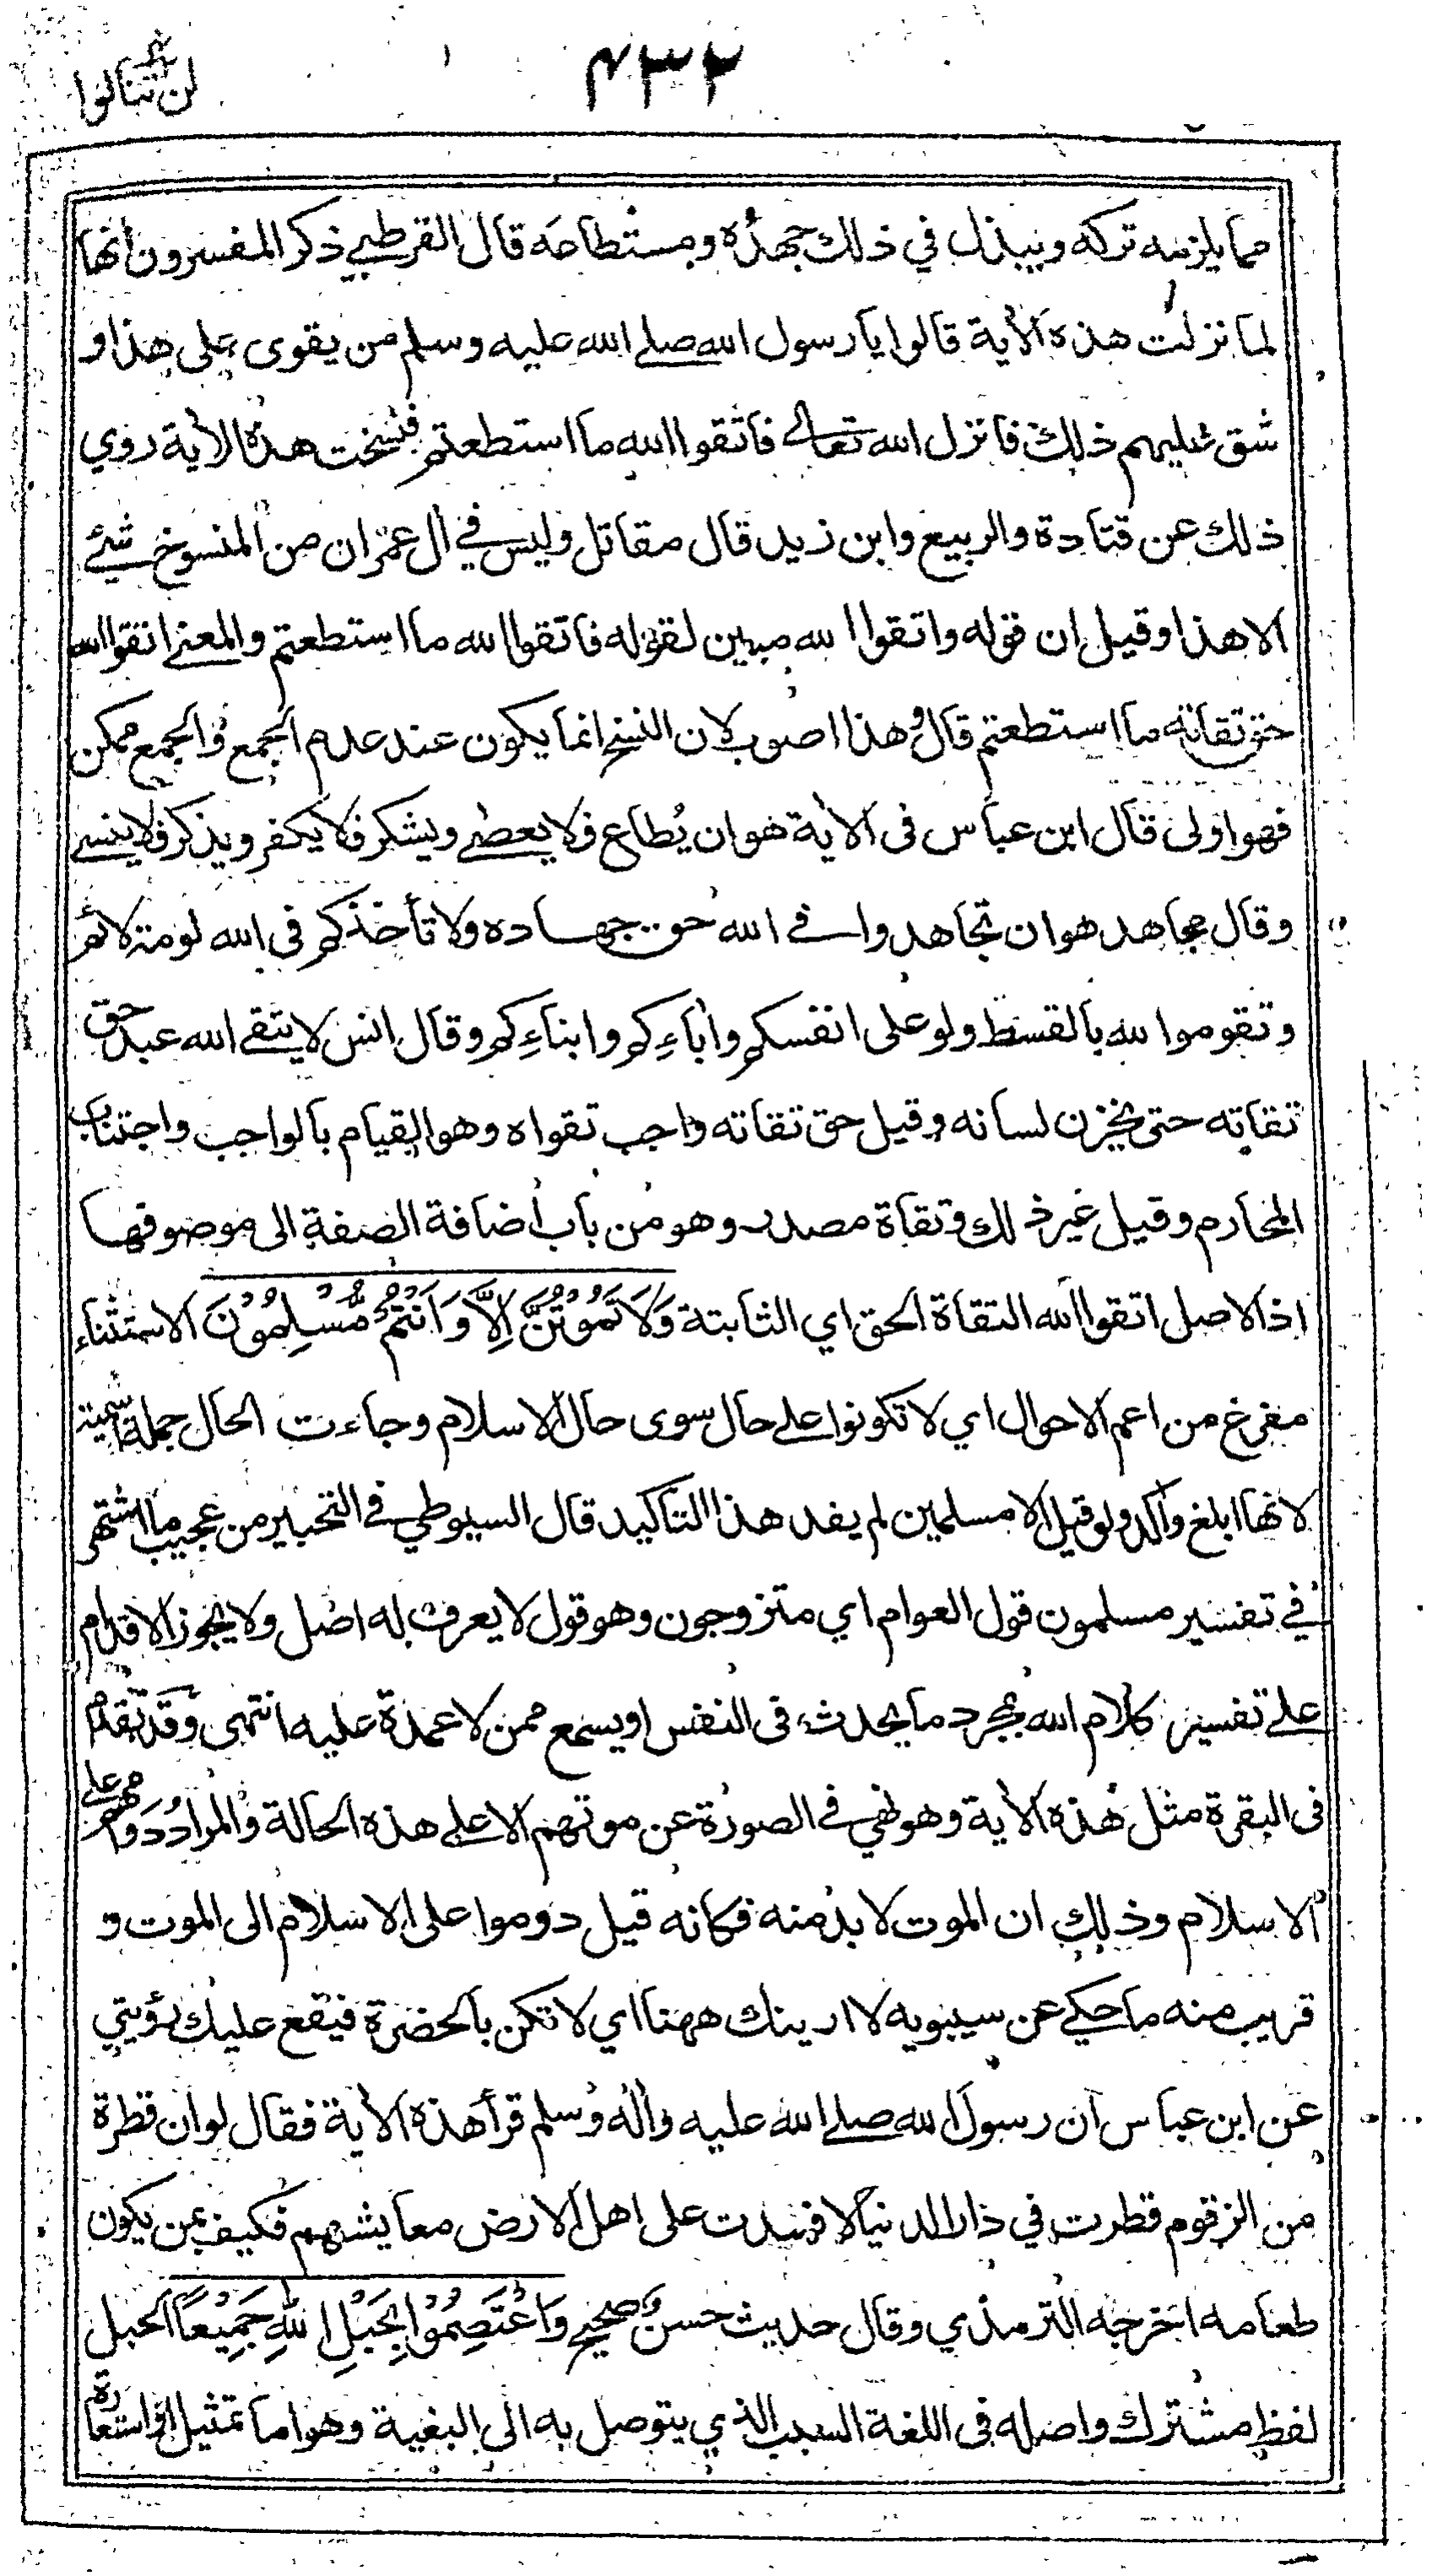 ۴۳۲
لن تنالوا
مما يلزمه تركه ويبذل في ذلك جهده ومستطاعه قال القرطبي ذكر المفسرون انها
لما نزلت هذه الأية قالوا يا رسول الله صلے الله عليه وسلم من يقوى على هذا و
شق عليهم ذلك فانزل الله تعالے فاتقوا الله ما استطعتم فنسخت هذه الأية روي
ذلك عن قتادة والربيع وابن زيد قال مقاتل وليس في أل عمران من المنسوخ شئے
الا هذا وقيل ان قوله واتقوا الله مبين لقوله فاتقوا الله ما استطعتم والمعنے اتقوا الله
حق تقاته ما استطعتم قال وهذا اصوب لان النسخ انما يكون عند عدم الجمع والجمع ممكن
فهو اولى قال ابن عباس فى الأية هو ان يُطاع فلا يعصے ويشكر فلا يكفر ويذكر فلا ينسے
وقال مجاهد هو ان تجاهدوا فے الله حق جهاده ولا تأخذكم فى الله لومة لائم
وتقوموا لله بالقسط ولو على انفسكم وأباءِكم وابناءِكم وقال انس لا يتقے الله عبد حق
تقاته حتى يخزن لسانه وقيل حق تقاته واجب تقواه وهو القيام بالواجب واجتناب
المحارم وقيل غير ذلك وتقاة مصدر وهو من باب اضافة الصفة الى موصوفها
اذ الاصل اتقوا الله التقاة الحق اي الثابتة وَلَا تَمُوْتُنَّ اِلَّا وَاَنْتُمْ مُّسْلِمُوْنَ الاستثناء
مفرغ من اعم الاحوال اي لا تكونوا علے حال سوى حال الاسلام وجاءت الحال جملة اسمية
لانها ابلغ وأكد ولو قيل الا مسلمين لم يفد هذا التاكيد قال السيوطي في التحبير من عجيب ما اشتهر
في تفسير مسلمون قول العوام اي متزوجون وهو قول لا يعرف له اصل ولا يجوز الاقدام
علے تفسير كلام الله بمجرد ما يحدث فى النفس او يسمع ممن لا عمدة عليه انتهى وقد تقدم
فى البقرة مثل هذه الأية وهو نهي في الصورة عن موتهم الا علے هذه الحالة والمراد دوامهم علے
الاسلام وذلك ان الموت لا بد منه فكانه قيل دوموا على الاسلام الى الموت و
قريب منه ما حكي عن سيبويه لا ارينك ههنا اي لا تكن بالحضرة فيقع عليك رؤيتي
عن ابن عباس ان رسول الله صلے الله عليه وأله وسلم قرأ هذه الأية فقال لو ان قطرة
من الزقوم قطرت في دار الدنيا لافسدت على اهل الارض معايشهم فكيف بمن يكون
طعامه اخرجه الترمذي وقال حديث حسن صحيح وَاعْتَصِمُوْا بِحَبْلِ اللهِ جَمِيْعًا الحبل
لفظ مشترك واصله فى اللغة السبب الذي يتوصل به الى البغية وهو اما تمثيل او استعارة